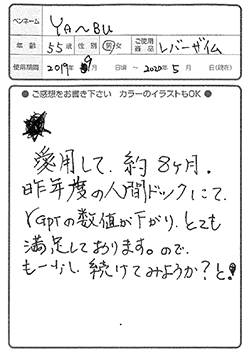 ペンネーム YA〜BU
年齢 55才 性別 男・女 ご使用商品 レバーザイム
使用期間 2019年 9月 日頃 〜 2020年 5月 日(現在)
● ご感想をお書き下さい カラーのイラストもOK ●
愛用して、約8ヶ月。
昨年度の人間ドックにて、
γGPTの数値が下がり、とても
満足しております。ので、
もー少し、続けてみようか?と!